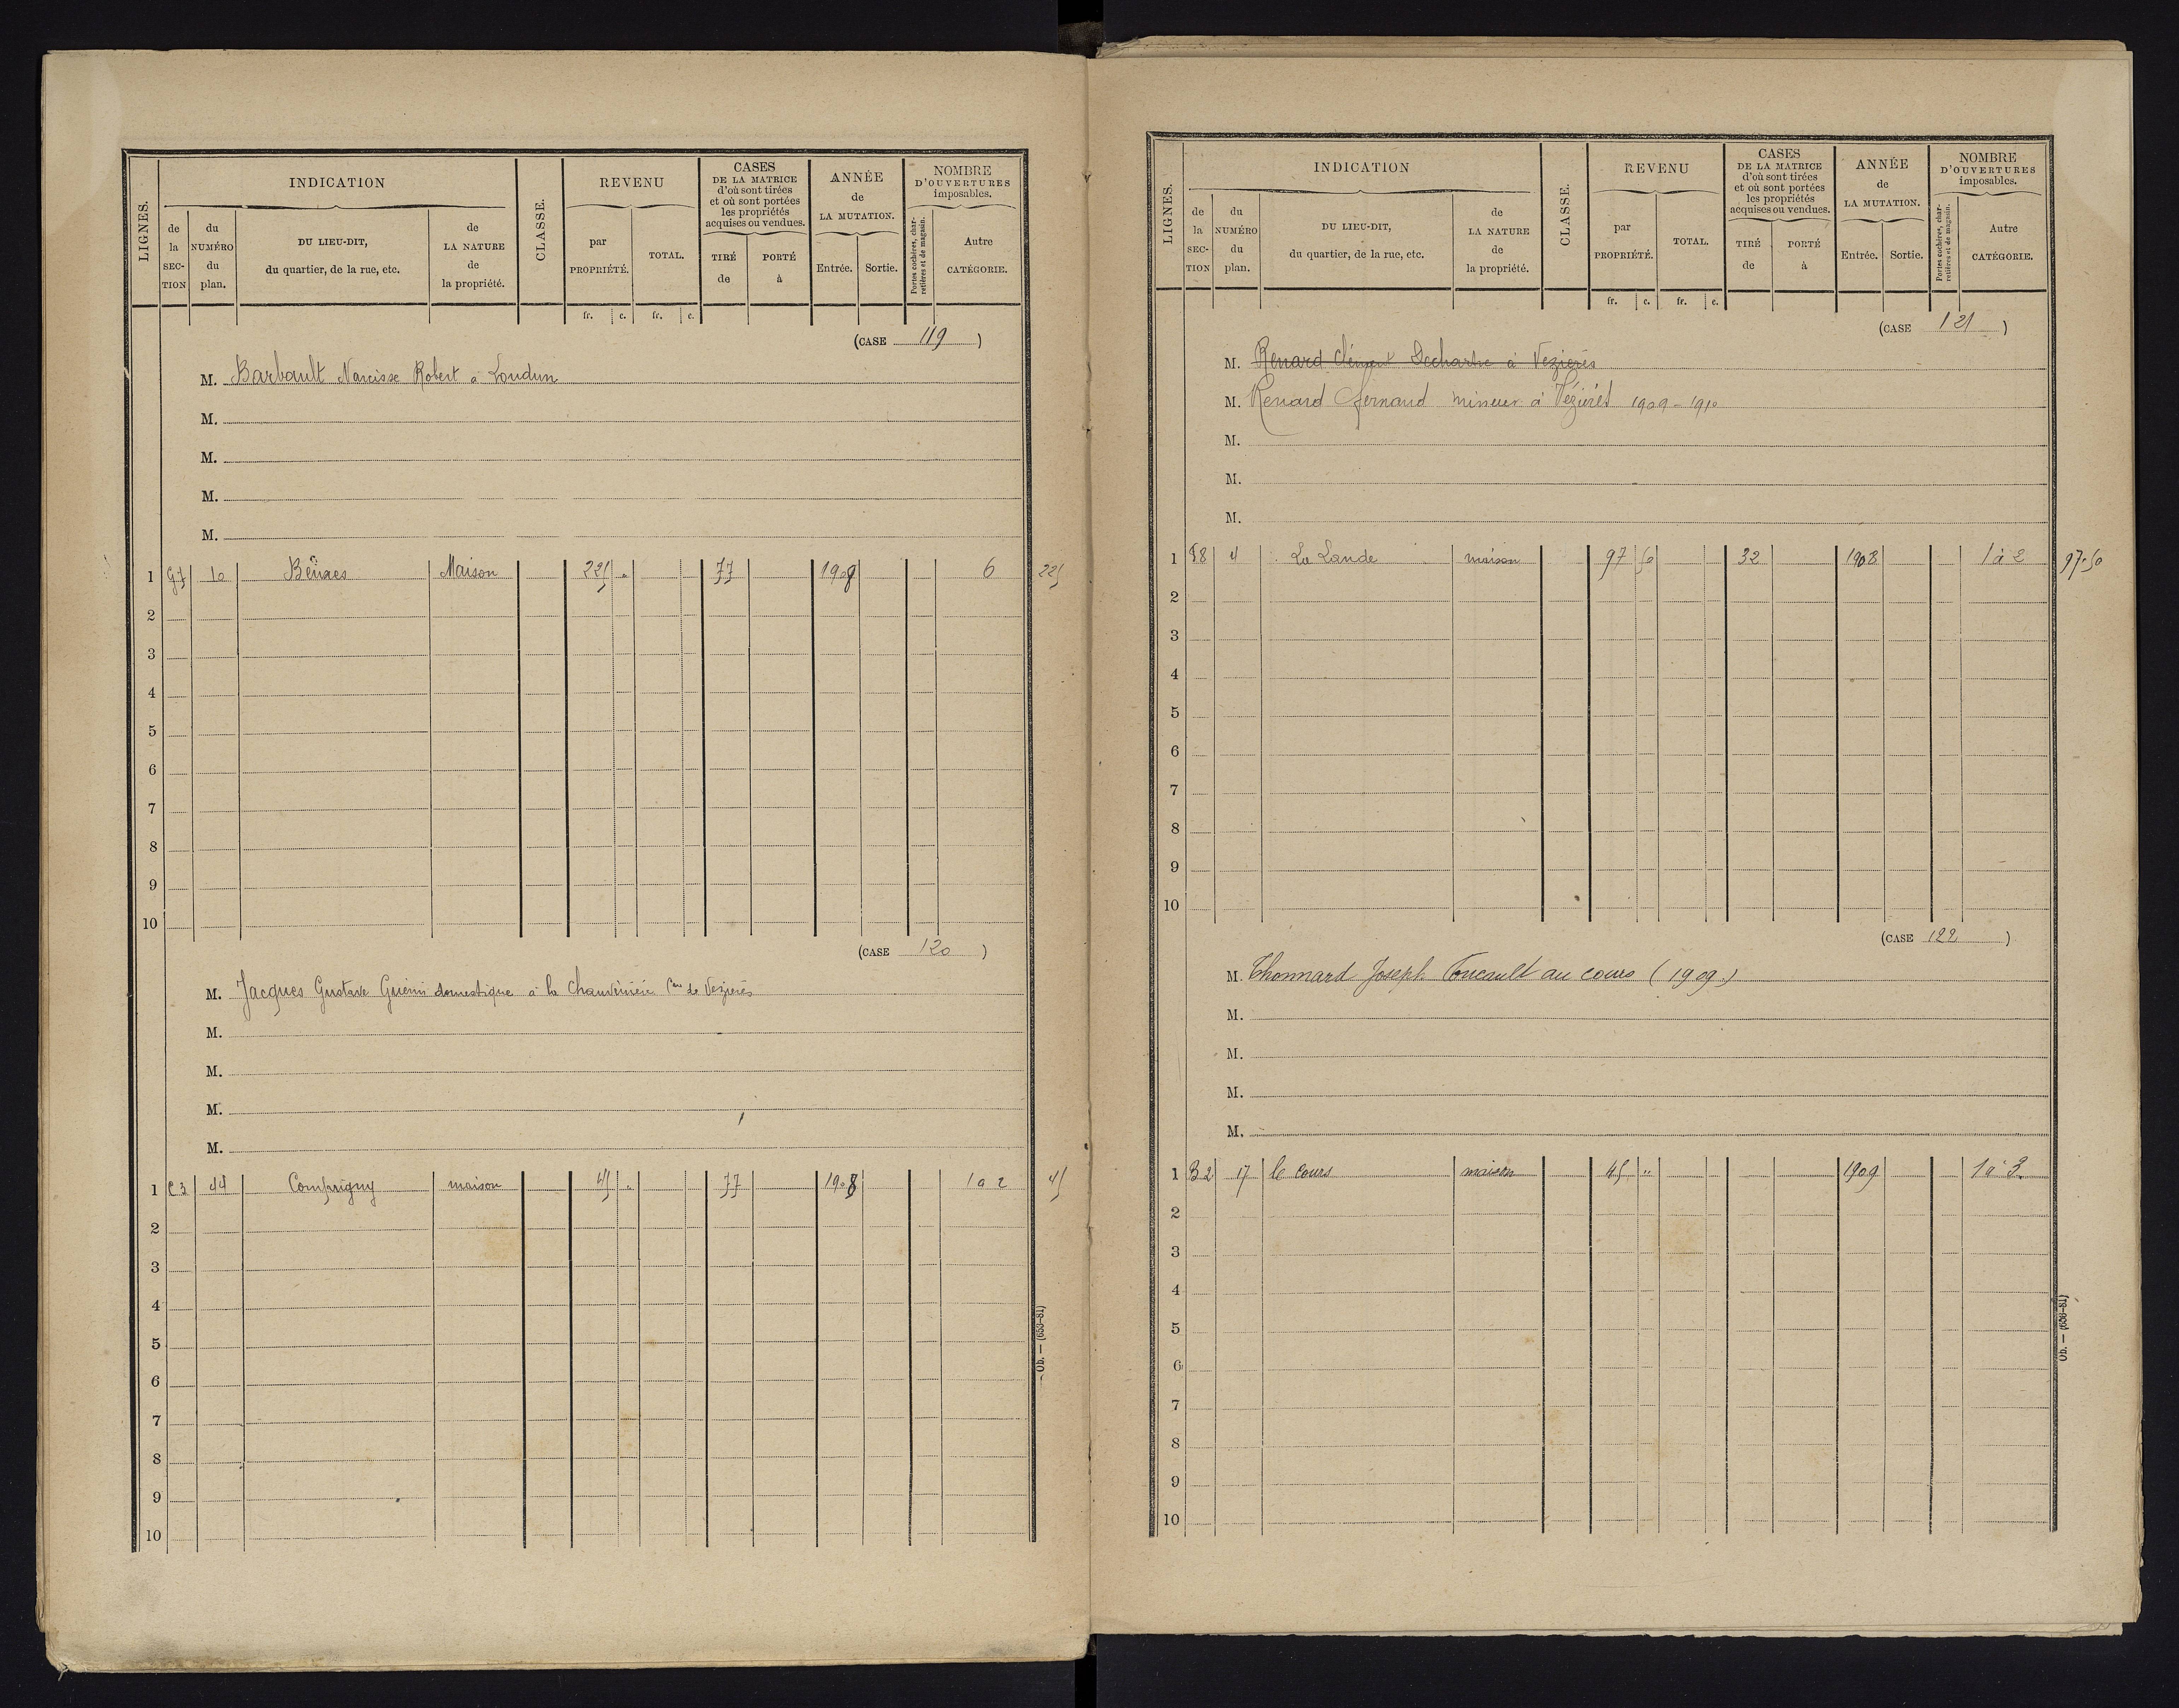 LIGNES.
INDICATION
CLASSE.
REVENU
CASES
DE LA MATRICE
d'où sont tirées
et où sont portées
les propriétés
acquises ou vendues.
ANNÉE
de
LA MUTATION.
NOMBRE
D'OUVERTURES
imposables.
de la SECTION
du NUMÉRO du plan.
DU LIEU-DIT,
du quartier, de la rue, etc.
de LA NATURE de la propriété.
par PROPRIÉTÉ.
TOTAL.
TIRÉ de
PORTÉ à
Entrée.
Sortie.
Portes cochères, charretières et de magasin.
Autre CATÉGORIE.
fr. c. fr. c.
(CASE 119)
M. Barbault Narcisse Robert à Loudun
M.
M.
M.
M.
1 G7 10 Maison 225 " 77 1908 6 225
2
3
4
5
6
7
8
9
10
(CASE 120)
M. Jacques Gustave Guérin domestique à la Cne de Vezières
M.
M.
M.
M.
1 C3 44 Comprigny maison 45 " 77 1908 1 à 2 45
2
3
4
5
6
7
8
9
10
Ob. — (653-81)
LIGNES.
INDICATION
CLASSE.
REVENU
CASES
DE LA MATRICE
d'où sont tirées
et où sont portées
les propriétés
acquises ou vendues.
ANNÉE
de
LA MUTATION.
NOMBRE
D'OUVERTURES
imposables.
de la SECTION
du NUMÉRO du plan.
DU LIEU-DIT,
du quartier, de la rue, etc.
de LA NATURE de la propriété.
par PROPRIÉTÉ.
TOTAL.
TIRÉ de
PORTÉ à
Entrée.
Sortie.
Portes cochères, charretières et de magasin.
Autre CATÉGORIE.
fr. c. fr. c.
(CASE 121)
M. Renard Clément à Vezières
M. Renard Fernand mineur à Vézières 1909-1910
M.
M.
M.
1 4 La Lande maison 97 50 32 1908 1 à 2 97.50
2
3
4
5
6
7
8
9
10
(CASE 122)
M. Thonnard Joseph Foucault au cours (1909)
M.
M.
M.
M.
1 B2 17 le cours maison 45 " 1909 1 à 3
2
3
4
5
6
7
8
9
10
Ob. — (653-81)